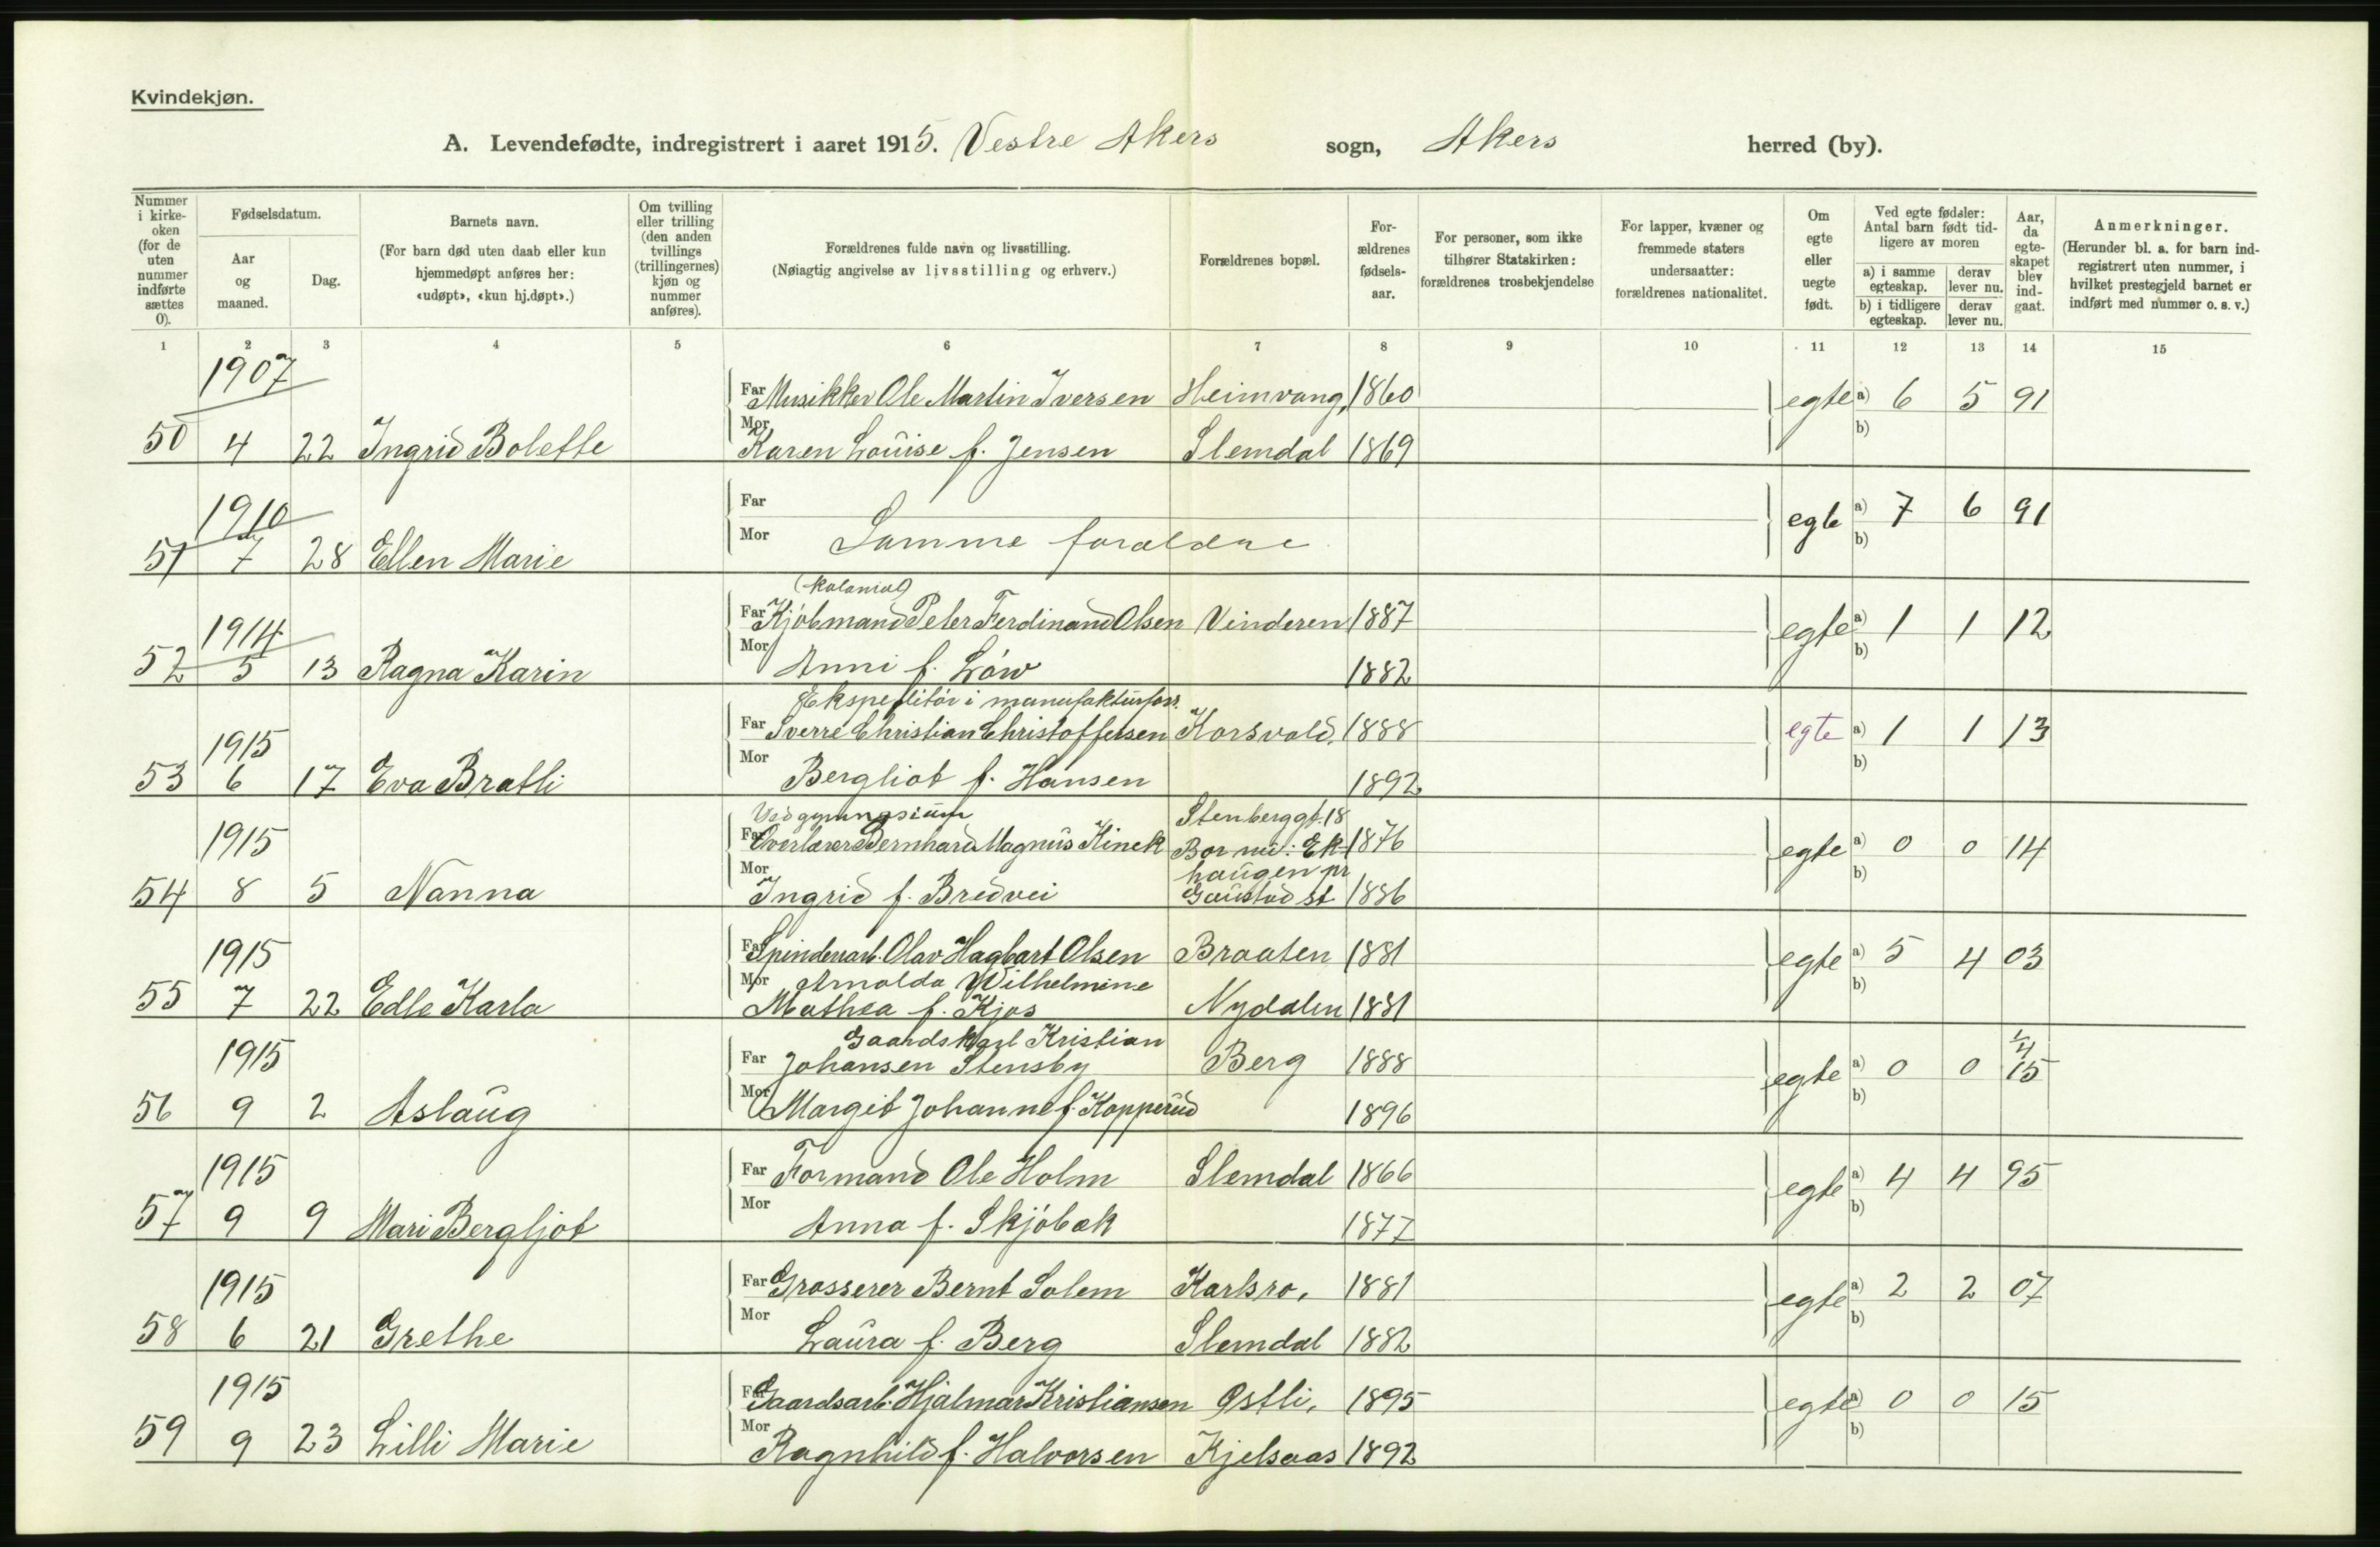 Kvindekjøn.
A. Levendefødte, indregistrert i aaret 1915. Vestre Akers sogn, Akers herred (by).
Nummer i kirkeoken (for de uten nummer indførte sættes 0).
Fødselsdatum.
Aar og maaned.
Dag.
Barnets navn.
(For barn død uten daab eller kun hjemmedøpt anføres her: «udøpt», «kun hj.døpt».)
Om tvilling eller trilling (den anden tvillings (trillingernes) kjøn og nummer anføres).
Forældrenes fulde navn og livsstilling.
(Nøiagtig angivelse av livsstilling og erhverv.)
Forældrenes bopæl.
Forældrenes fødselsaar.
For personer, som ikke tilhører Statskirken: forældrenes trosbekjendelse
For lapper, kvæner og fremmede staters undersaatter: forældrenes nationalitet.
Om egte eller uegte født.
Ved egte fødsler: Antal barn født tidligere av moren
a) i samme egteskap. derav lever nu.
b) i tidligere egteskap. derav lever nu.
Aar, da egteskapet blev indgaat.
Anmerkninger.
(Herunder bl. a. for barn indregistrert uten nummer, i hvilket prestegjeld barnet er indført med nummer o. s. v.)
1 2 3 4 5 6 7 8 9 10 11 12 13 14 15
1907
Far Musikker Ole Martin Iversen Heimvang, 1860 egte a) 6 5 91
50 4 22 Ingrid Bolette Mor Karen Louise f. Jensen Slemdal 1869 b)
1910
Far egte a) 7 6 91
51 7 28 Ellen Marie Mor Samme forældre b)
(kolonial)
1914 Far Kjöbmand Peter Ferdinand Olsen Vinderen 1887 egte a) 1 1 12
52 5 13 Ragna Karin Mor Anni f. Löw 1882 b)
Ekspeditör i manufakturforr.
1915 Far Sverre Christian Christoffersen Korsvold. 1888 egte a) 1 1 13
53 6 17 Eva Bratli Mor Bergliot f. Hansen 1892 b)
Ved gymnasium Stenberggt. 18
1915 Far Overlærer Bernhard Magnus Kinck Bor nu: Ek- 1876 egte a) 0 0 14
haugen pr
54 8 5 Nanna Mor Ingrid f. Bredvei Gaustad st 1886 b)
1915 Far Spinderiarb. Olav Hagbart Olsen Braaten 1881 egte a) 5 4 03
Mor Arnolda Wilhelmine
55 7 22 Edle Karla Mathea f. Kjos Nydalen 1881 b)
Gaardskarl Kristian
1915 Far Johansen Stensby Berg 1888 egte a) 0 0 1/4 15
56 9 2 Aslaug Mor Margit Johanne f. Kopperud 1896 b)
1915 Far Formand Ole Holm Slemdal 1866 egte a) 4 4 95
57 9 9 Mari Bergljot Mor Anna f. Skjöbæk 1877 b)
1915 Far Grosserer Bernt Solem Karlsro, 1881 egte a) 2 2 07
58 6 21 Grethe Mor Laura f. Berg Slemdal 1882 b)
1915 Far Gaardsarb. Hjalmar Kristiansen Østli, 1895 egte a) 0 0 15
59 9 23 Lilli Marie Mor Ragnhild f. Halvorsen Kjelsaas 1892 b)